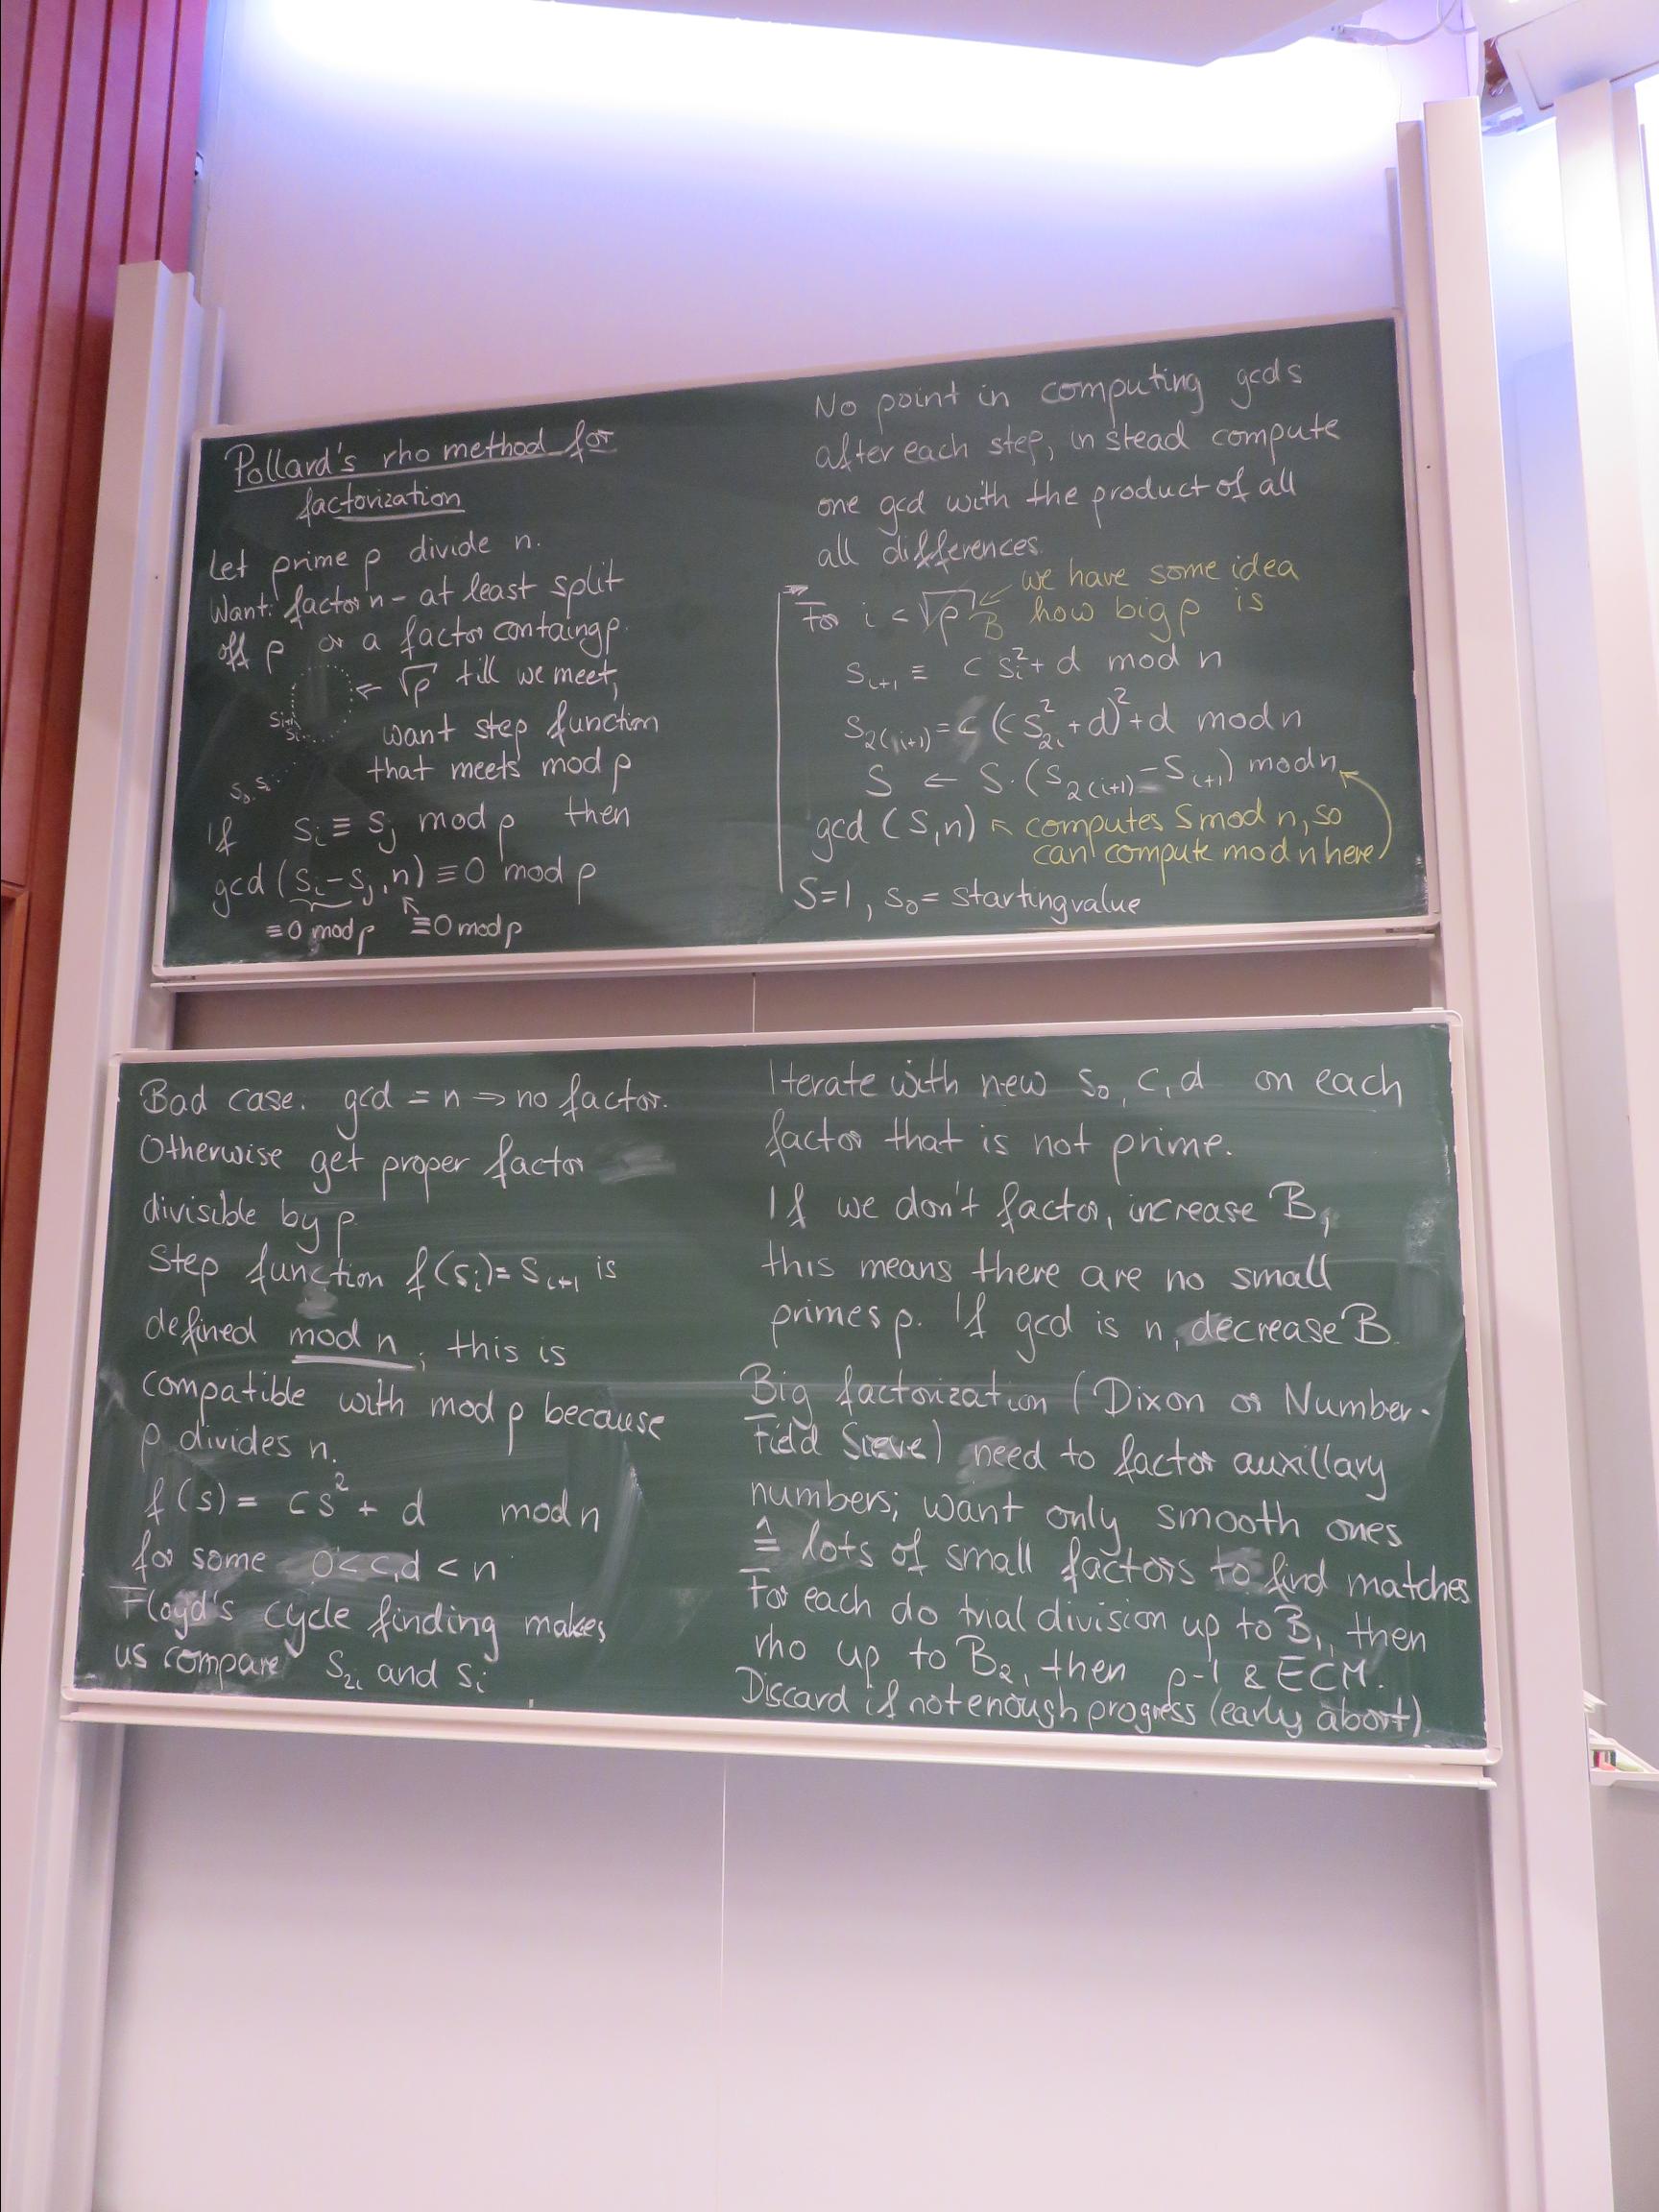 Pollard's rho method for
factorization
Let prime p divide n.
Want: factor n - at least split
off p or a factor containg p.
← √p till we meet,
want step function
that meets mod p
S₀. S₁
Si
Si+1
If Si ≡ Sj mod p then
gcd (Si - Sj, n) ≡ 0 mod p
≡ 0 mod p ≡ 0 mod p
No point in computing gcds
after each step, instead compute
one gcd with the product of all
all differences.
we have some idea
how big p is
For i < √p B
Si+1 ≡ c Si² + d mod n
S2(i+1) = c (c S2i² + d)² + d mod n
S ← S · (S2(i+1) - Si+1) mod n
gcd (S, n) ↖ computes S mod n, so
can compute mod n here
S=1, S₀ = startingvalue
Bad case. gcd = n ⇒ no factor.
Otherwise get proper factor
divisible by p
Step function f(Si) = Si+1 is
defined mod n; this is
compatible with mod p because
p divides n.
f(s) = cs² + d mod n
for some 0 < c,d < n
Floyd's cycle finding makes
us compare S2i and Si
Iterate with new S₀, c, d on each
factor that is not prime.
If we don't factor, increase B,
this means there are no small
primes p. If gcd is n, decrease B.
Big factorization (Dixon or Number-
Field Sieve) need to factor auxillary
numbers; want only smooth ones
≙ lots of small factors to find matches
For each do trial division up to B₁, then
rho up to B₂, then p-1 & ECM.
Discard if not enough progress (early abort).